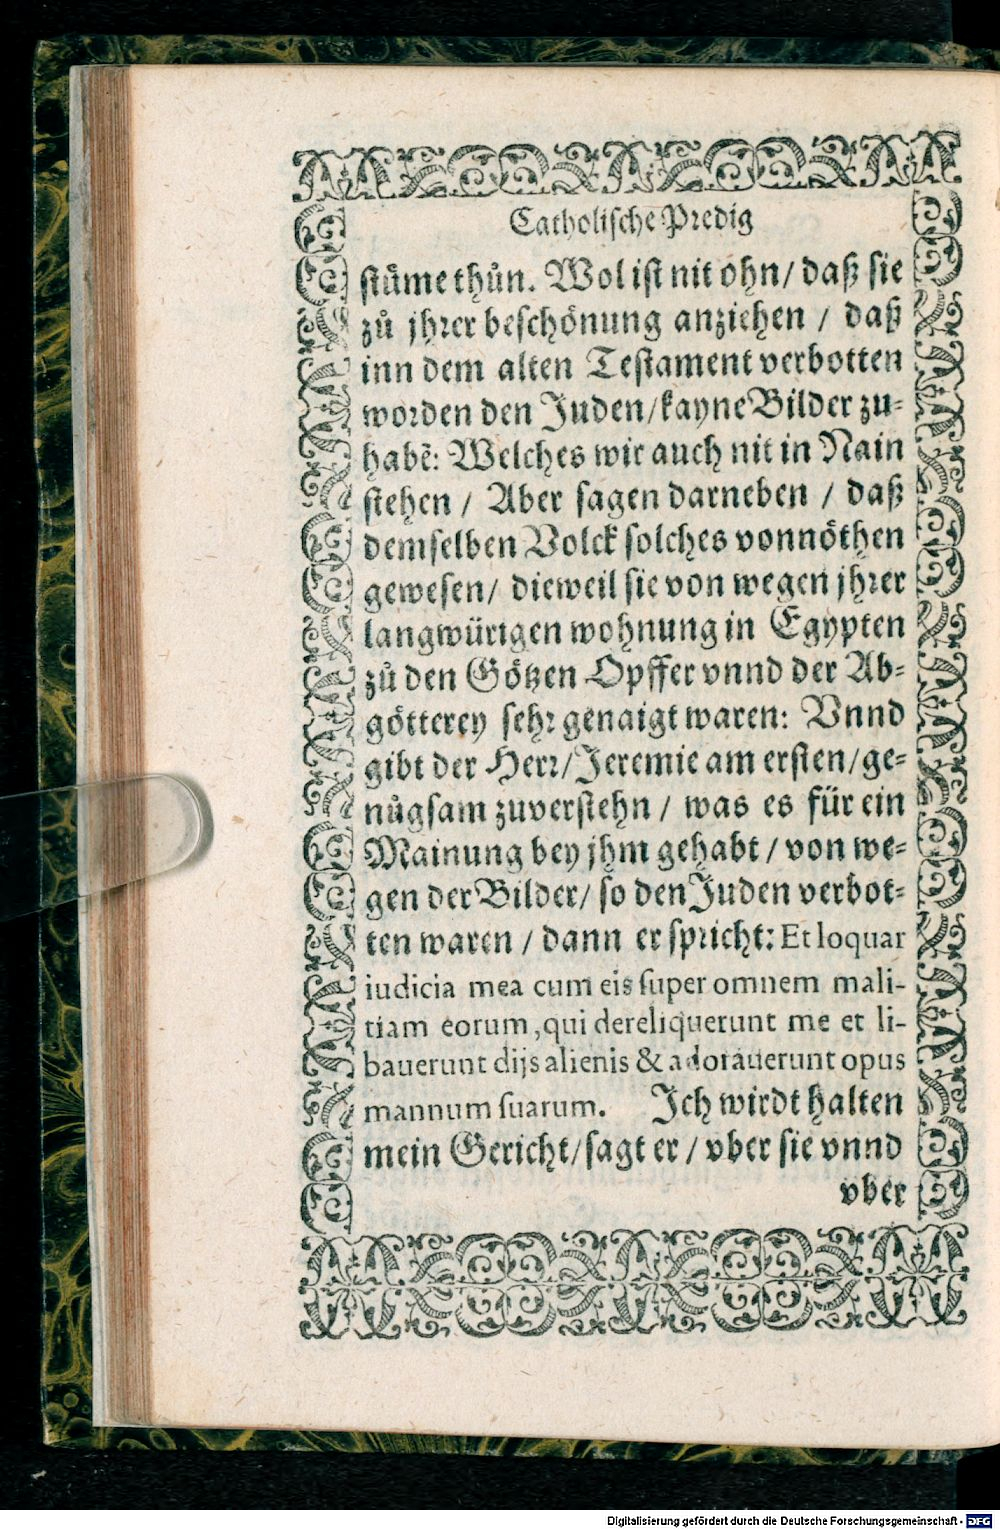 Catholische Predig
stůme thůn. Wol ist nit ohn / daß sie
zů jhrer beschönung anziehen / daß
inn dem alten Testament verbotten
worden den Juden / kayne Bilder zu-
habẽ: Welches wir auch nit in Nain
stehen / Aber sagen darneben / daß
demselben Volck solches vonnöthen
gewesen / dieweil sie von wegen jhrer
langwürigen wohnung in Egypten
zů den Götzen Opffer vnnd der Ab-
götterey sehr genaigt waren: Vnnd
gibt der Herr / Jeremie am ersten / ge-
nůgsam zuverstehn / was es für ein
Mainung bey jhm gehabt / von we-
gen der Bilder / so den Juden verbot-
ten waren / dann er spricht: Et loquar
iudicia mea cum eis super omnem mali-
tiam eorum, qui dereliquerunt me et li-
bauerunt dijs alienis & adorauerunt opus
mannum suarum. Ich wirdt halten
mein Gericht / sagt er / vber sie vnnd
vber
Digitalisierung gefördert durch die Deutsche Forschungsgemeinschaft - DFG